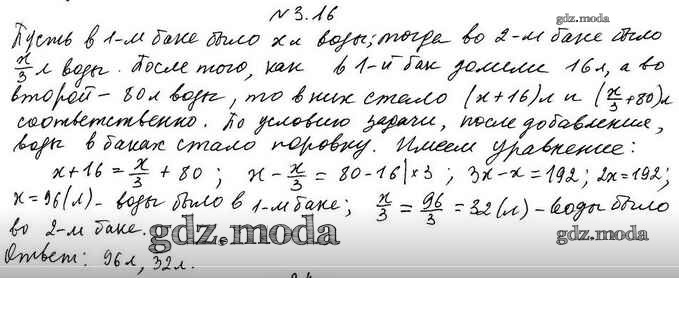 №3.16
gdz.moda
Пусть в 1-м баке было x л воды; тогда во 2-м баке было
x/3 л воды. После того, как в 1-й бак долили 16 л, а во
второй - 80 л воды, то в них стало (x+16) л и (x/3+80) л
соответственно. По условию задачи, после добавления,
воды в баках стало поровну. Имеем уравнение:
x+16 = x/3 + 80; x - x/3 = 80-16|×3; 3x-x=192; 2x=192;
x=96(л) - воды было в 1-м баке; x/3 = 96/3 = 32(л) - воды было
во 2-м баке.
gdz.moda
gdz.moda
Ответ: 96 л, 32 л.